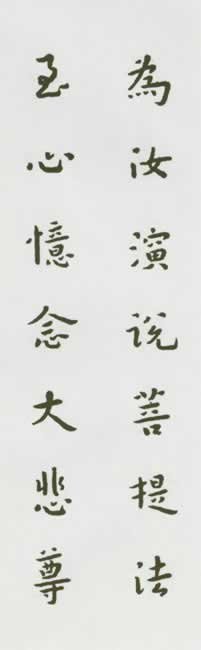 為汝演说菩提法
至心憶念大悲尊